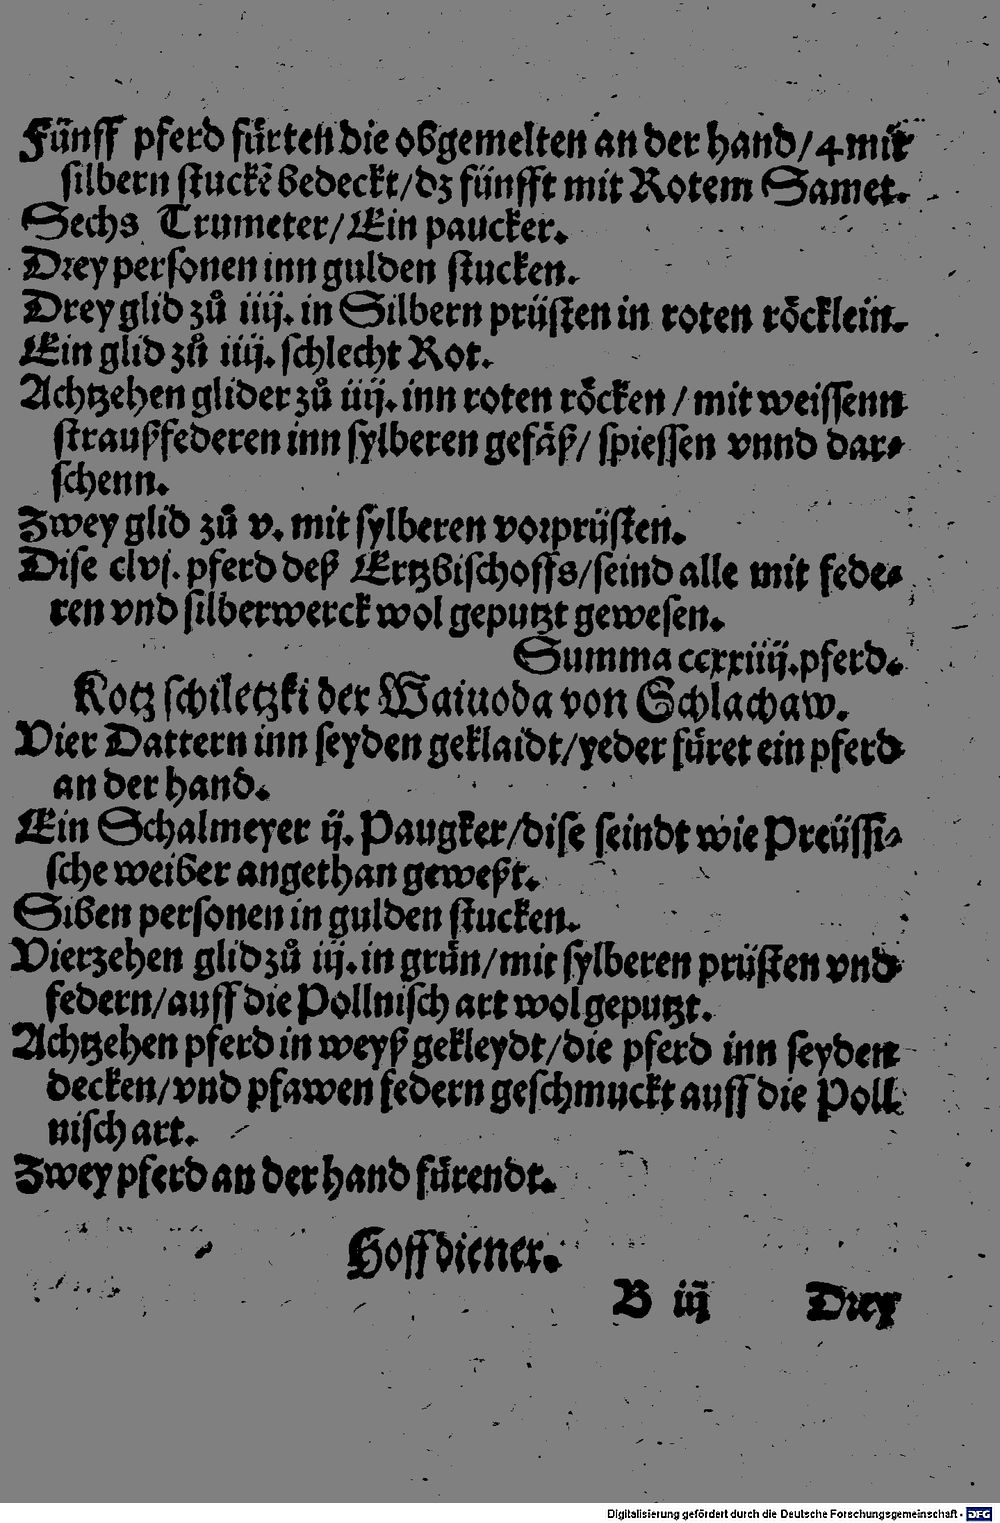 Fünff pferd fürten die obgemelten an der hand/ 4 mit
silbern stuckē bedeckt/ dz fünfft mit Rotem Samet.
Sechs Trumeter/ Ein paucker.
Drey personen inn gulden stucken.
Drey glid zů iiij. in Silbern prüsten in roten röcklein.
Ein glid zů iiij. schlecht Rot.
Achtzehen glider zů iiij. inn roten röcken / mit weissenn
straußfederen inn sylberen gefäß/ spiessen vnnd dar⸗
schenn.
Zwey glid zů v. mit sylberen vorprüsten.
Dise clvj. pferd deß Ertzbischoffs/ seind alle mit fede⸗
ren vnd silberwerck wol geputzt gewesen.
Summa ccxxiiij. pferd.
Kotz schiletzki der Waiuoda von Schlachaw.
Vier Dattern inn seyden geklaidt/ yeder füret ein pferd
an der hand.
Ein Schalmeyer ij. Paugker/ dise seindt wie Preüssi⸗
sche weiber angethan geweßt.
Siben personen in gulden stucken.
Vierzehen glid zů iij. in grün/ mit sylberen prüsten vnd
federn/ auff die Pollnisch art wol geputzt.
Achtzehen pferd in weyß gekleydt/ die pferd inn seyden
decken/ vnd pfawen federn geschmuckt auff die Poll⸗
nisch art.
Zwey pferd an der hand fürendt.
Hoffdiener.
B iij Drey
Digitalisierung gefördert durch die Deutsche Forschungsgemeinschaft - DFG